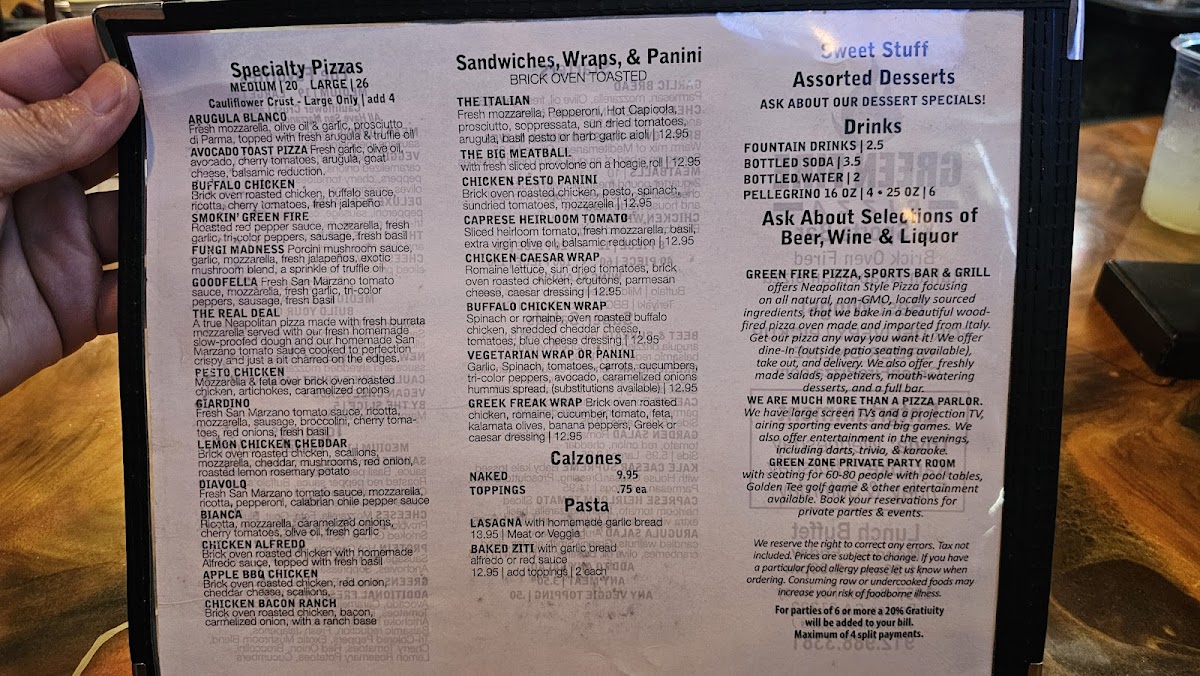 Specialty Pizzas
MEDIUM | 20 LARGE | 26
Cauliflower Crust - Large Only | add 4
ARUGULA BLANCO
Fresh mozzarella, olive oil & garlic, prosciutto
di Parma, topped with fresh arugula & truffle oil
AVOCADO TOAST PIZZA Fresh garlic, olive oil,
avocado, cherry tomatoes, arugula, goat
cheese, balsamic reduction.
BUFFALO CHICKEN
Brick oven roasted chicken, buffalo sauce,
ricotta, cherry tomatoes, fresh jalapeño
SMOKIN' GREEN FIRE
Roasted red pepper sauce, mozzarella, fresh
garlic, tri-color peppers, sausage, fresh basil
FUNGI MADNESS Porcini mushroom sauce,
garlic, mozzarella, fresh jalapeños, exotic
mushroom blend, a sprinkle of truffle oil
GOODFELLA Fresh San Marzano tomato
sauce, mozzarella, fresh garlic, tri-color
peppers, sausage, fresh basil
THE REAL DEAL
A true Neapolitan pizza made with fresh burrata
mozzarella served with our fresh homemade
slow-proofed dough and our homemade San
Marzano tomato sauce cooked to perfection
crispy and just a bit charred on the edges.
PESTO CHICKEN
Mozzarella & feta over brick oven roasted
chicken, artichokes, caramelized onions
GIARDINO
Fresh San Marzano tomato sauce, ricotta,
mozzarella, sausage, broccolini, cherry toma-
toes, red onions, fresh basil
LEMON CHICKEN CHEDDAR
Brick oven roasted chicken, scallions,
mozzarella, cheddar, mushrooms, red onion,
roasted lemon rosemary potato
DIAVOLO
Fresh San Marzano tomato sauce, mozzarella,
ricotta, pepperoni, calabrian chile pepper sauce
BIANCA
Ricotta, mozzarella, caramelized onions,
cherry tomatoes, olive oil, fresh garlic
CHICKEN ALFREDO
Brick oven roasted chicken with homemade
Alfredo sauce, topped with fresh basil
APPLE BBQ CHICKEN
Brick oven roasted chicken, red onion,
cheddar cheese, scallions,
CHICKEN BACON RANCH
Brick oven roasted chicken, bacon,
carmelized onion, with a ranch base
Sandwiches, Wraps, & Panini
BRICK OVEN TOASTED
THE ITALIAN
Fresh mozzarella, Pepperoni, Hot Capicola,
prosciutto, soppressata, sun dried tomatoes,
arugula, basil pesto or herb garlic aioli | 12.95
THE BIG MEATBALL
with fresh sliced provolone on a hoagie roll | 12.95
CHICKEN PESTO PANINI
Brick oven roasted chicken, pesto, spinach,
sundried tomatoes, mozzarella | 12.95
CAPRESE HEIRLOOM TOMATO
Sliced heirloom tomato, fresh mozzarella, basil,
extra virgin olive oil, balsamic reduction | 12.95
CHICKEN CAESAR WRAP
Romaine lettuce, sun dried tomatoes, brick
oven roasted chicken, croutons, parmesan
cheese, caesar dressing | 12.95
BUFFALO CHICKEN WRAP
Spinach or romaine, oven roasted buffalo
chicken, shredded cheddar cheese,
tomatoes, blue cheese dressing | 12.95
VEGETARIAN WRAP OR PANINI
Garlic, Spinach, tomatoes, carrots, cucumbers,
tri-color peppers, avocado, caramelized onions
hummus spread, (substitutions available) | 12.95
GREEK FREAK WRAP Brick oven roasted
chicken, romaine, cucumber, tomato, feta,
kalamata olives, banana peppers, Greek or
caesar dressing | 12.95
Calzones
NAKED 9.95
TOPPINGS .75 ea
Pasta
LASAGNA with homemade garlic bread
13.95 | Meat or Veggie
BAKED ZITI with garlic bread
alfredo or red sauce
12.95 | add toppings | 2 each
Sweet Stuff
Assorted Desserts
ASK ABOUT OUR DESSERT SPECIALS!
Drinks
FOUNTAIN DRINKS | 2.5
BOTTLED SODA | 3.5
BOTTLED WATER | 2
PELLEGRINO 16 OZ | 4 • 25 OZ | 6
Ask About Selections of
Beer, Wine & Liquor
GREEN FIRE PIZZA, SPORTS BAR & GRILL
offers Neapolitan Style Pizza focusing
on all natural, non-GMO, locally sourced
ingredients, that we bake in a beautiful wood-
fired pizza oven made and imported from Italy.
Get our pizza any way you want it! We offer
dine-In (outside patio seating available),
take out, and delivery. We also offer freshly
made salads, appetizers, mouth-watering
desserts, and a full bar.
WE ARE MUCH MORE THAN A PIZZA PARLOR.
We have large screen TVs and a projection TV,
airing sporting events and big games. We
also offer entertainment in the evenings,
including darts, trivia, & karaoke.
GREEN ZONE PRIVATE PARTY ROOM
with seating for 60-80 people with pool tables,
Golden Tee golf game & other entertainment
available. Book your reservations for
private parties & events.
We reserve the right to correct any errors. Tax not
included. Prices are subject to change. If you have
a particular food allergy please let us know when
ordering. Consuming raw or undercooked foods may
increase your risk of foodborne illness.
For parties of 6 or more a 20% Gratiuity
will be added to your bill.
Maximum of 4 split payments.